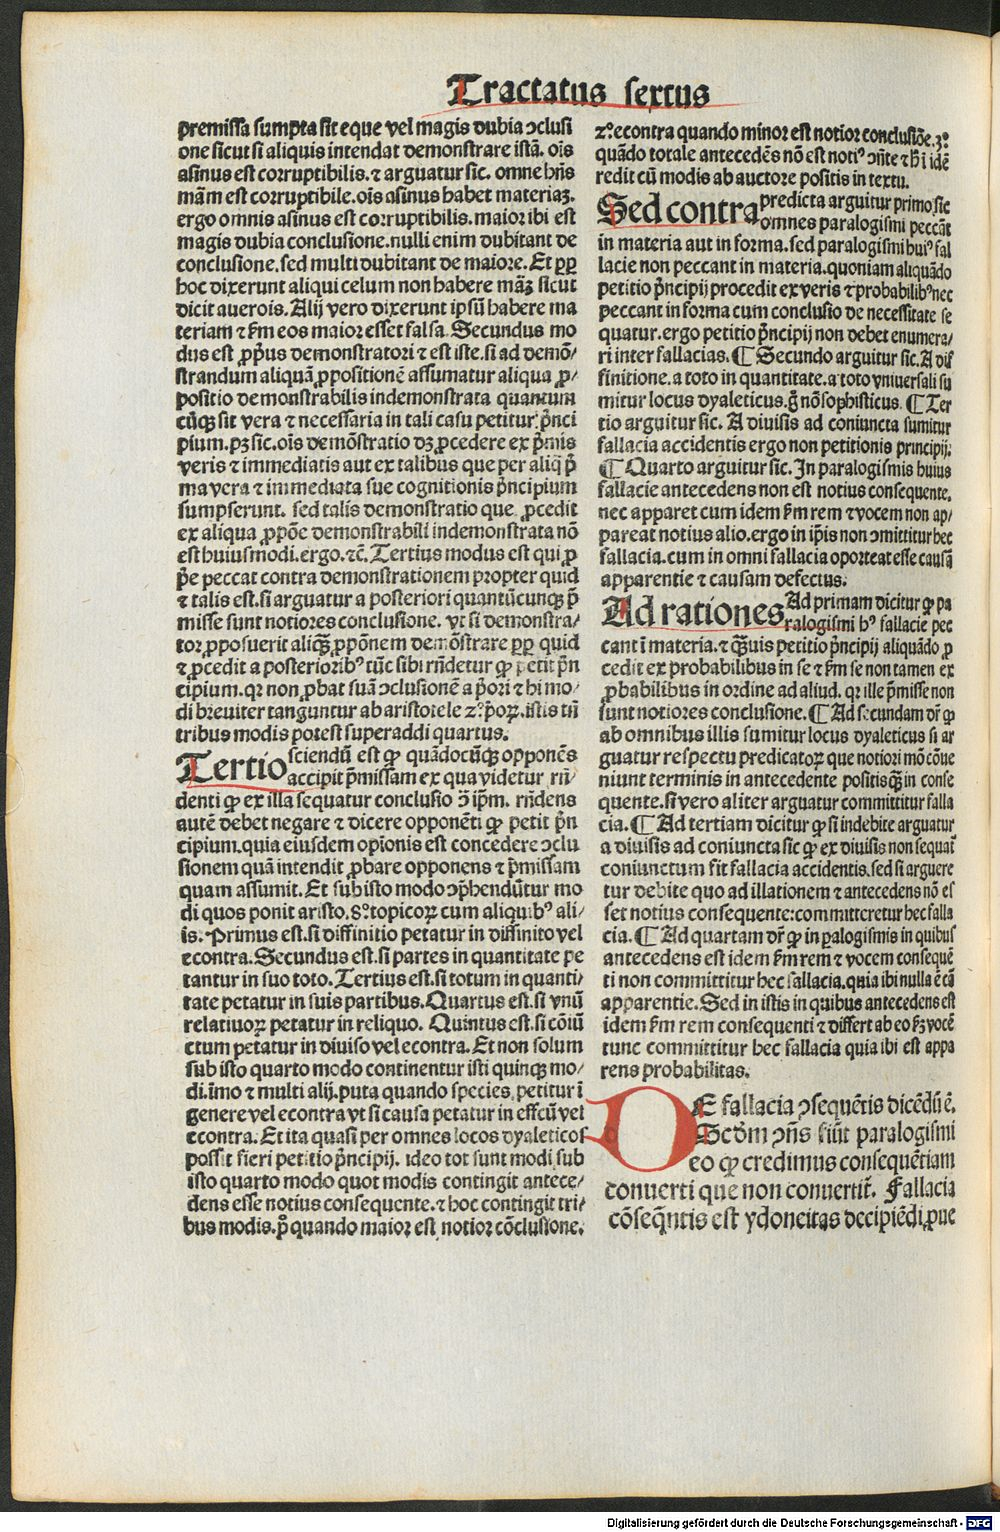 Tractatus sextus
premissa sumpta sit eque vel magis dubia ↄclusi
one sicut si aliquis intendat demonstrare istā. oīs
asinus est corruptibilis. ⁊ arguatur sic. omne hn̄s
mām est corruptibile. oīs asinus habet materiaꝫ.
ergo omnis asinus est corruptibilis. maior ibi est
magis dubia conclusione. nulli enim dubitant de
conclusione. sed multi dubitant de maiore. Et ꝓpꝑ
hoc dixerunt aliqui celum non habere māꝫ sicut
dicit auerois. Alij vero dixerunt ipsū habere ma
teriam ⁊ ẜm eos maior esset falsa. Secundus mo
dus est ꝓpus demonstratori ⁊ est iste. si ad demō/
strandum aliquā ꝓpositionē assumatur aliqua ꝓ/
positio demonstrabilis indemonstrata quantum
cūqꝫ sit vera ⁊ necessaria in tali casu petitur pn̄ci
pium. pꝫ sic. oīs demōstratio dꝫ ꝓcedere ex p̄mis
veris ⁊ immediatis aut ex talibus que per aliq̄ p̄
ma vera ⁊ immediata sue cognitionis pn̄cipium
sumpserunt. sed talis demonstratio que ꝓcedit
ex aliqua ꝓpōe demonstrabili indemonstrata nō
est huiusmodi. ergo. ⁊c̄. Tertius modus est qui ꝓ
p̄e peccat contra demonstrationem propter quid
⁊ talis est. si arguatur a posteriori quantūcunqꝫ p̄
misse sunt notiores conclusione. vt si demonstra/
tor ꝓposuerit aliqꝫ ꝓpōnem demōstrare ꝓpꝑ quid
⁊ ꝓcedit a posterioribꝰ tūc sibi rn̄detur ꝙ petit pn̄
cipium. qꝛ non ꝓbat suā ↄclusionē a p̄ori ⁊ hi mo/
di breuiter tanguntur ab aristotele 2° p̄oꝝ. istis tn̄
tribus modis potest superaddi quartus.
Tertio sciendū est ꝙ quādocūqꝫ opponēs
accipit p̄missam ex qua videtur rn̄/
denti ꝙ ex illa sequatur conclusio ↄ̄ ip̄m. rn̄dens
autē debet negare ⁊ dicere opponēti ꝙ petit pn̄
cipium. quia eiusdem opionis est concedere ↄclu
sionem quā intendit ꝓbare opponens ⁊ p̄missam
quam assumit. Et sub isto modo ↄp̄hendūtur mo
di quos ponit aristo. 8° topicoꝝ cum aliquibꝰ ali/
is. Primus est. si diffinitio petatur in diffinito vel
econtra. Secundus est. si partes in quantitate pe
tantur in suo toto. Tertius est. si totum in quanti/
tate petatur in suis partibus. Quartus est. si vnū
relatiuoꝝ petatur in reliquo. Quintus est. si cōiū
ctum petatur in diuiso vel econtra. Et non solum
sub isto quarto modo continentur isti quinqꝫ mo/
di. īmo ⁊ multi alij. puta quando species petitur ī
genere vel econtra vt si causa petatur in effcū vel
econtra. Et ita quasi per omnes locos dyaleticos
possit fieri petitio pn̄cipij. ideo tot sunt modi sub
isto quarto modo quot modis contingit antece/
dens esse notius consequente. ⁊ hoc contingit tri/
bus modis. p° quando maior est notior cōclusione.
2° econtra quando minor est notior conclusiōe. 3°
quādo totale antecedēs nō est notiꝰ ↄn̄te ⁊ h̄ ī idē
redit cū modis ab auctore positis in textu.
Sed contra predicta arguitur primo sic
omnes paralogismi peccāt
in materia aut in forma. sed paralogismi huiꝰ fal
lacie non peccant in materia. quoniam aliquādo
petitio pn̄cipij procedit ex veris ⁊ probabilibꝰ nec
peccant in forma cum conclusio de necessitate se
quatur. ergo petitio pn̄cipij non debet enumera/
ri inter fallacias. ¶ Secundo arguitur sic. A dif
finitione. a toto in quantitate. a toto vniuersali su
mitur locus dyaleticus. g̊ nō sophisticus. ¶ Ter
tio arguitur sic. A diuisis ad coniuncta sumitur
fallacia accidentis ergo non petitionis principij.
¶ Quarto arguitur sic. In paralogismis huius
fallacie antecedens non est notius consequente.
nec apparet cum idem ẜm rem ⁊ vocem non ap/
pareat notius alio. ergo in ip̄is non ↄmittitur hec
fallacia. cum in omni fallacia oporteat esse causā
apparentie ⁊ causam defectus.
Ad rationes Ad primam dicitur ꝙ pa
ralogismi hꝰ fallacie pec
cant ī materia. ⁊ qꝫuis petitio pn̄cipij aliquādo ꝓ
cedit ex probabilibus in se ⁊ ẜm se non tamen ex
ꝓbabilibus in ordine ad aliud. qꝛ ille p̄misse non
sunt notiores conclusione. ¶ Ad secundam dr̄ ꝙ
ab omnibus illis sumitur locus dyaleticus si ar
guatur respectu predicatoꝝ que notiori mō cōue
niunt terminis in antecedente positis qꝫ in conse
quente. si vero aliter arguatur committitur falla
cia. ¶ Ad tertiam dicitur ꝙ si indebite arguatur
a diuisis ad coniuncta sic ꝙ ex diuisis non sequat᷑
coniunctum fit fallacia accidentis. sed si arguere
tur debite quo ad illationem ⁊ antecedens nō es
set notius consequente: committeretur hec falla
cia. ¶ Ad quartam dr̄ ꝙ in ꝑalogismis in quibus
antecedens est idem ẜm rem ⁊ vocem consequē
ti non committitur hec fallacia. quia ibi nulla ē cā
apparentie. Sed in istis in quibus antecedens est
idem ẜm rem consequenti ⁊ differt ab eo ẜꝫ vocē
tunc committitur hec fallacia quia ibi est appa
rens probabilitas.
DE fallacia ↄsequētis dicēdū ē.
Scd̄m ↄn̄s fiūt paralogismi
eo ꝙ credimus consequētiam
conuerti que non conuertit᷑. Fallacia
cōseq̄ntis est ydoneitas decipiēdi ꝓue